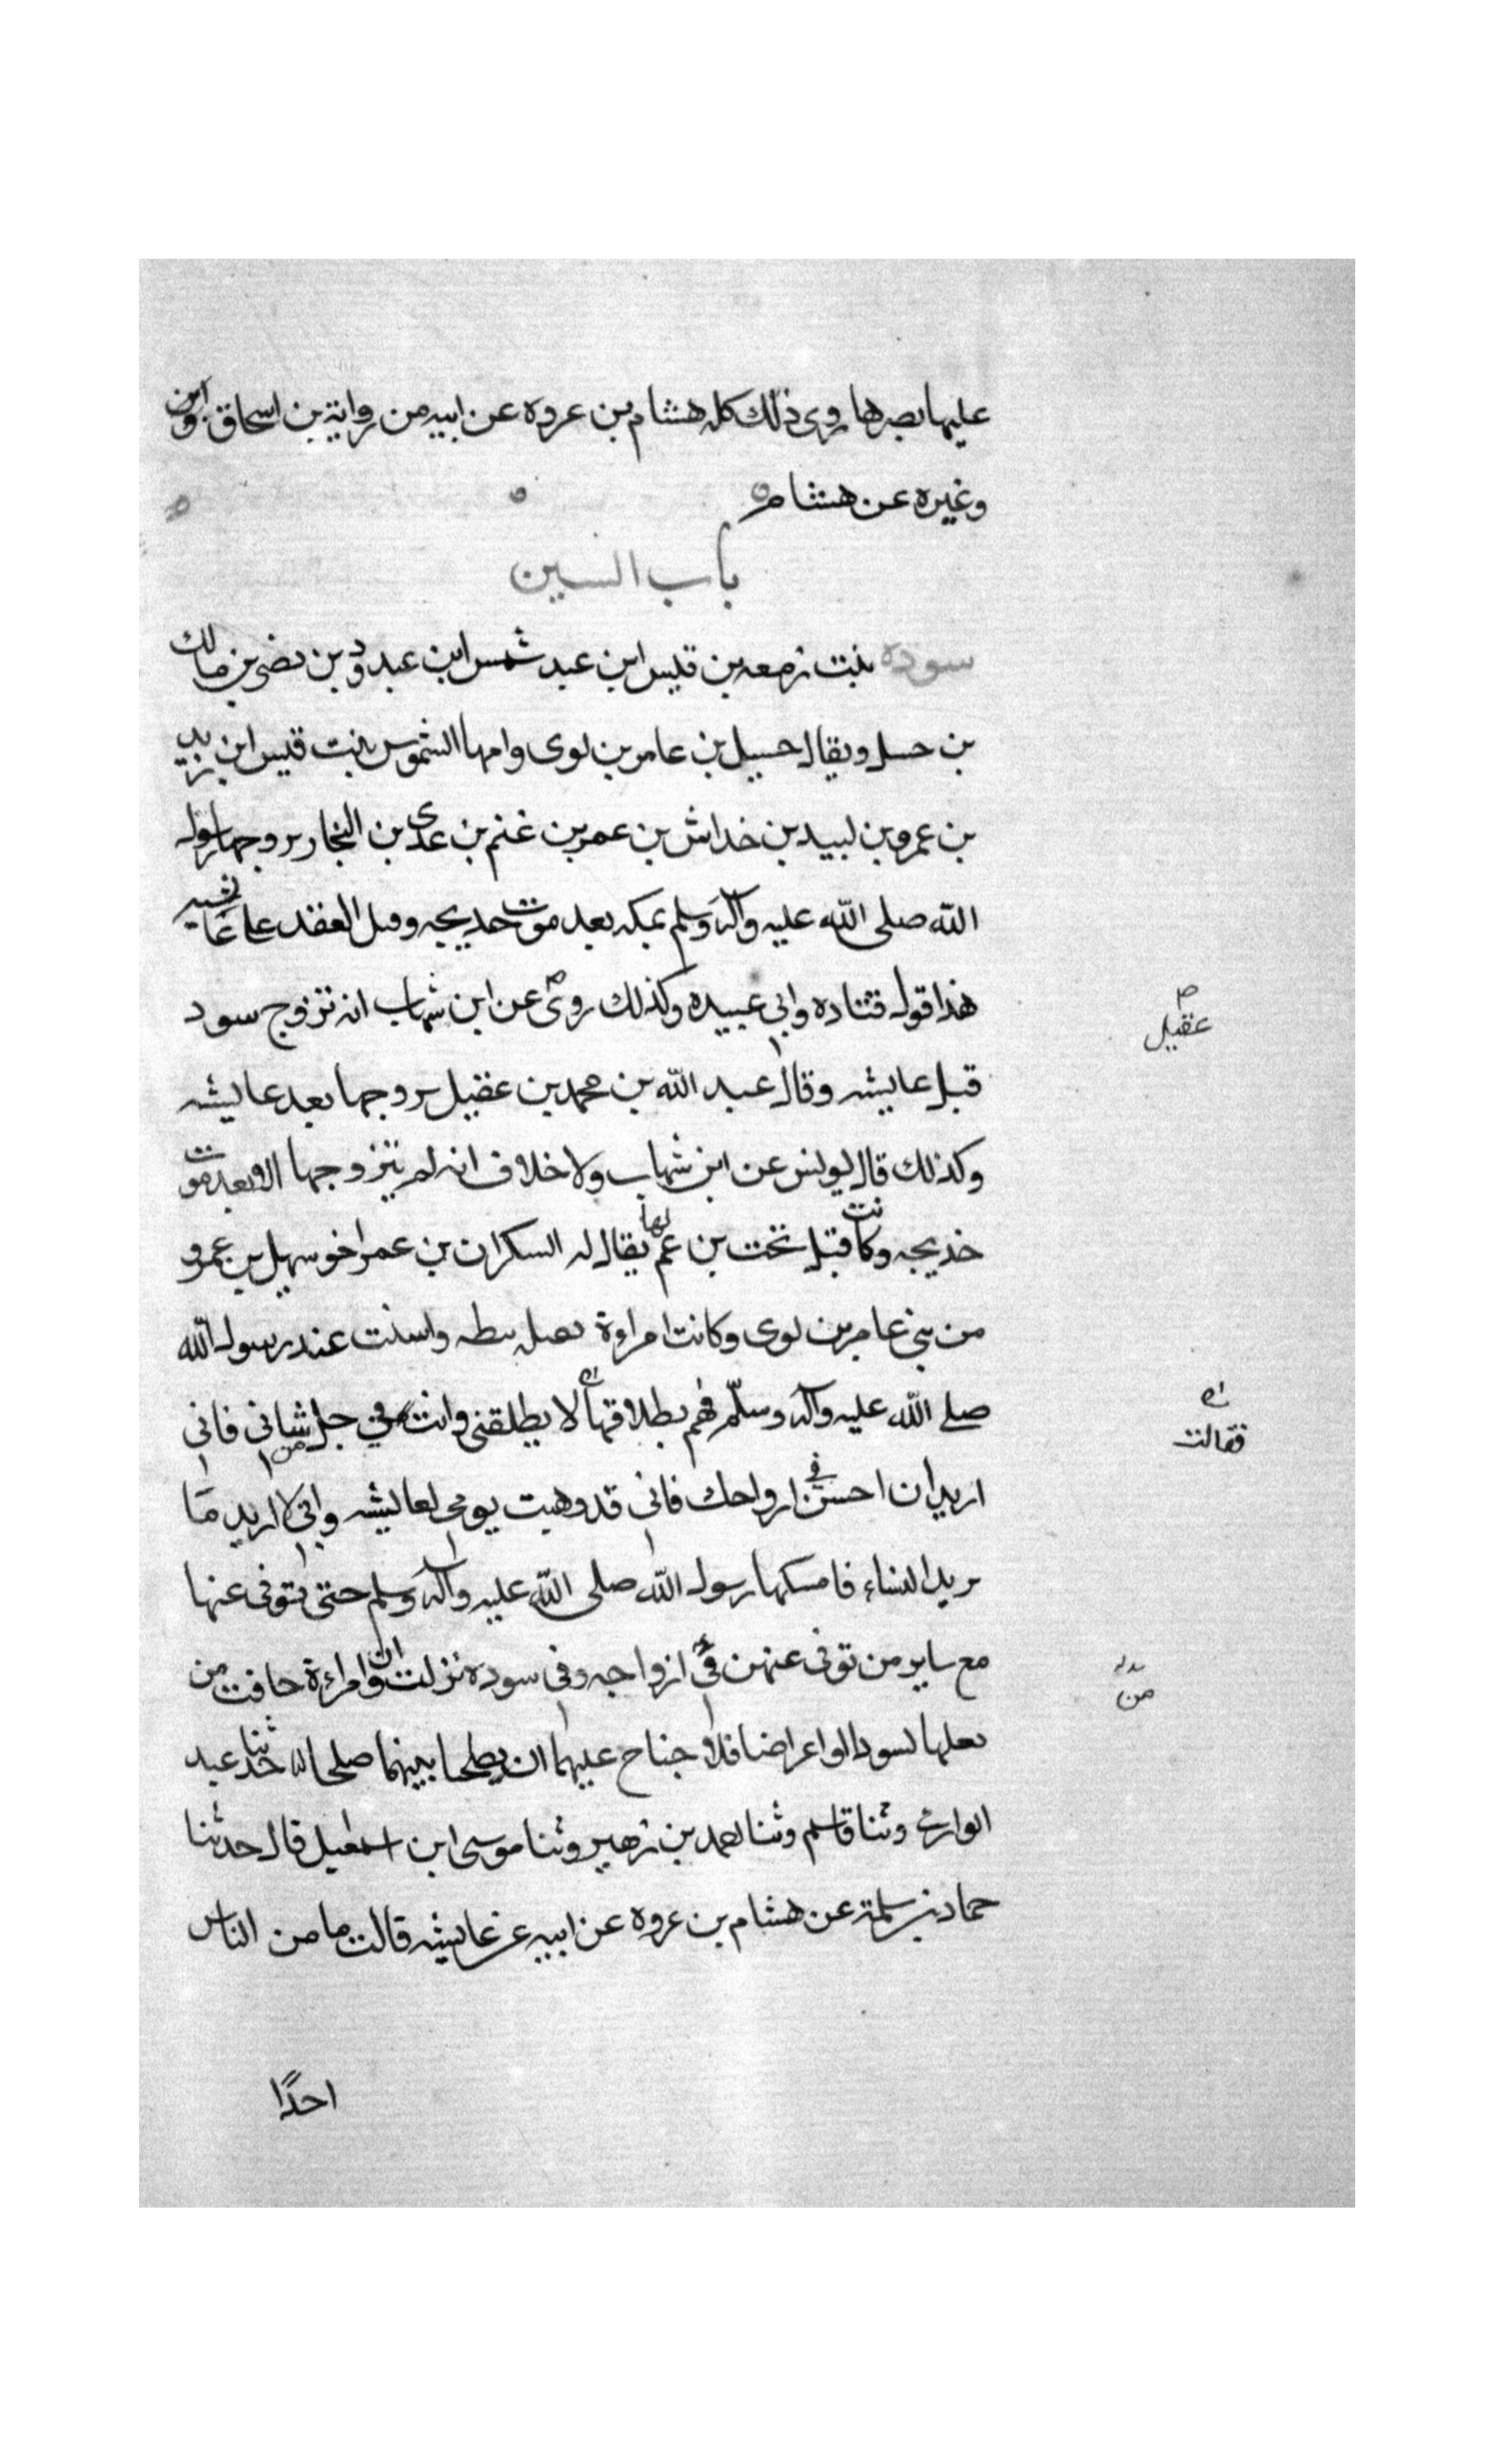 عليها بصرها روى ذلك كله هشام بن عروه عن ابيه من رواية بن اسحاق وابن
وغيره عن هشام
باب السين
سوده بنت زمعه بن قيس ابن عبد شمس ابن عبد ود بن نضر بن مالك
بن حسل ويقال حسيل بن عامر بن لوى وامها الشموس بنت قيس ابن زيد
بن عمرو بن لبيد بن خداش بن عمر بن غنم بن عدى بن النجار تروجها رسول
الله صلى الله عليه وآله وسلم بمكه بعد موت خديجه وقبل العقد على عائشه
هذا قول قتاده وابي عبيده وكذلك روى عن ابن شهاب انه تزوج سود
عقيل
قبل عايشه وقال عبد الله بن محمد بن عقيل تروجها بعد عايشه
وكذلك قال يونس عن ابن شهاب ولا خلاف انه لم يتزوجها الا بعد موت
خديجه وكانت قبل تحت بن عم لها يقال له السكران بن عمر اخو سهيل بن عمرو
من بني عامر بن لوى وكانت امراءة ثقيله ثبطه واسنت عند رسول الله
صلى الله عليه وآله وسلم فهم بطلاقها لا يطلقنى وانت في حل من شانى فانى
فقالت
اريد ان احشر في ازواجك فانى قد وهبت يومى لعايشه وانى لا اريد ما
تريد النساء فامسكها رسول الله صلى الله عليه وآله وسلم حتى توفى عنها
مع ساير من توفى عنهن في ازواجه وفى سوده نزلت وان امراءة خافت من
من
بعلها نسوزا او اعراضا فلا جناح عليهما ان يصلحا بينهما صلحا حدثنا عبد
الوارث وثنا قاسم وثنا احمد بن زهير وثنا موسى ابن اسمعيل قال حدثنا
حماد بن سلمة عن هشام بن عروه عن ابيه عن عايشه قالت ما من الناس
احدًا